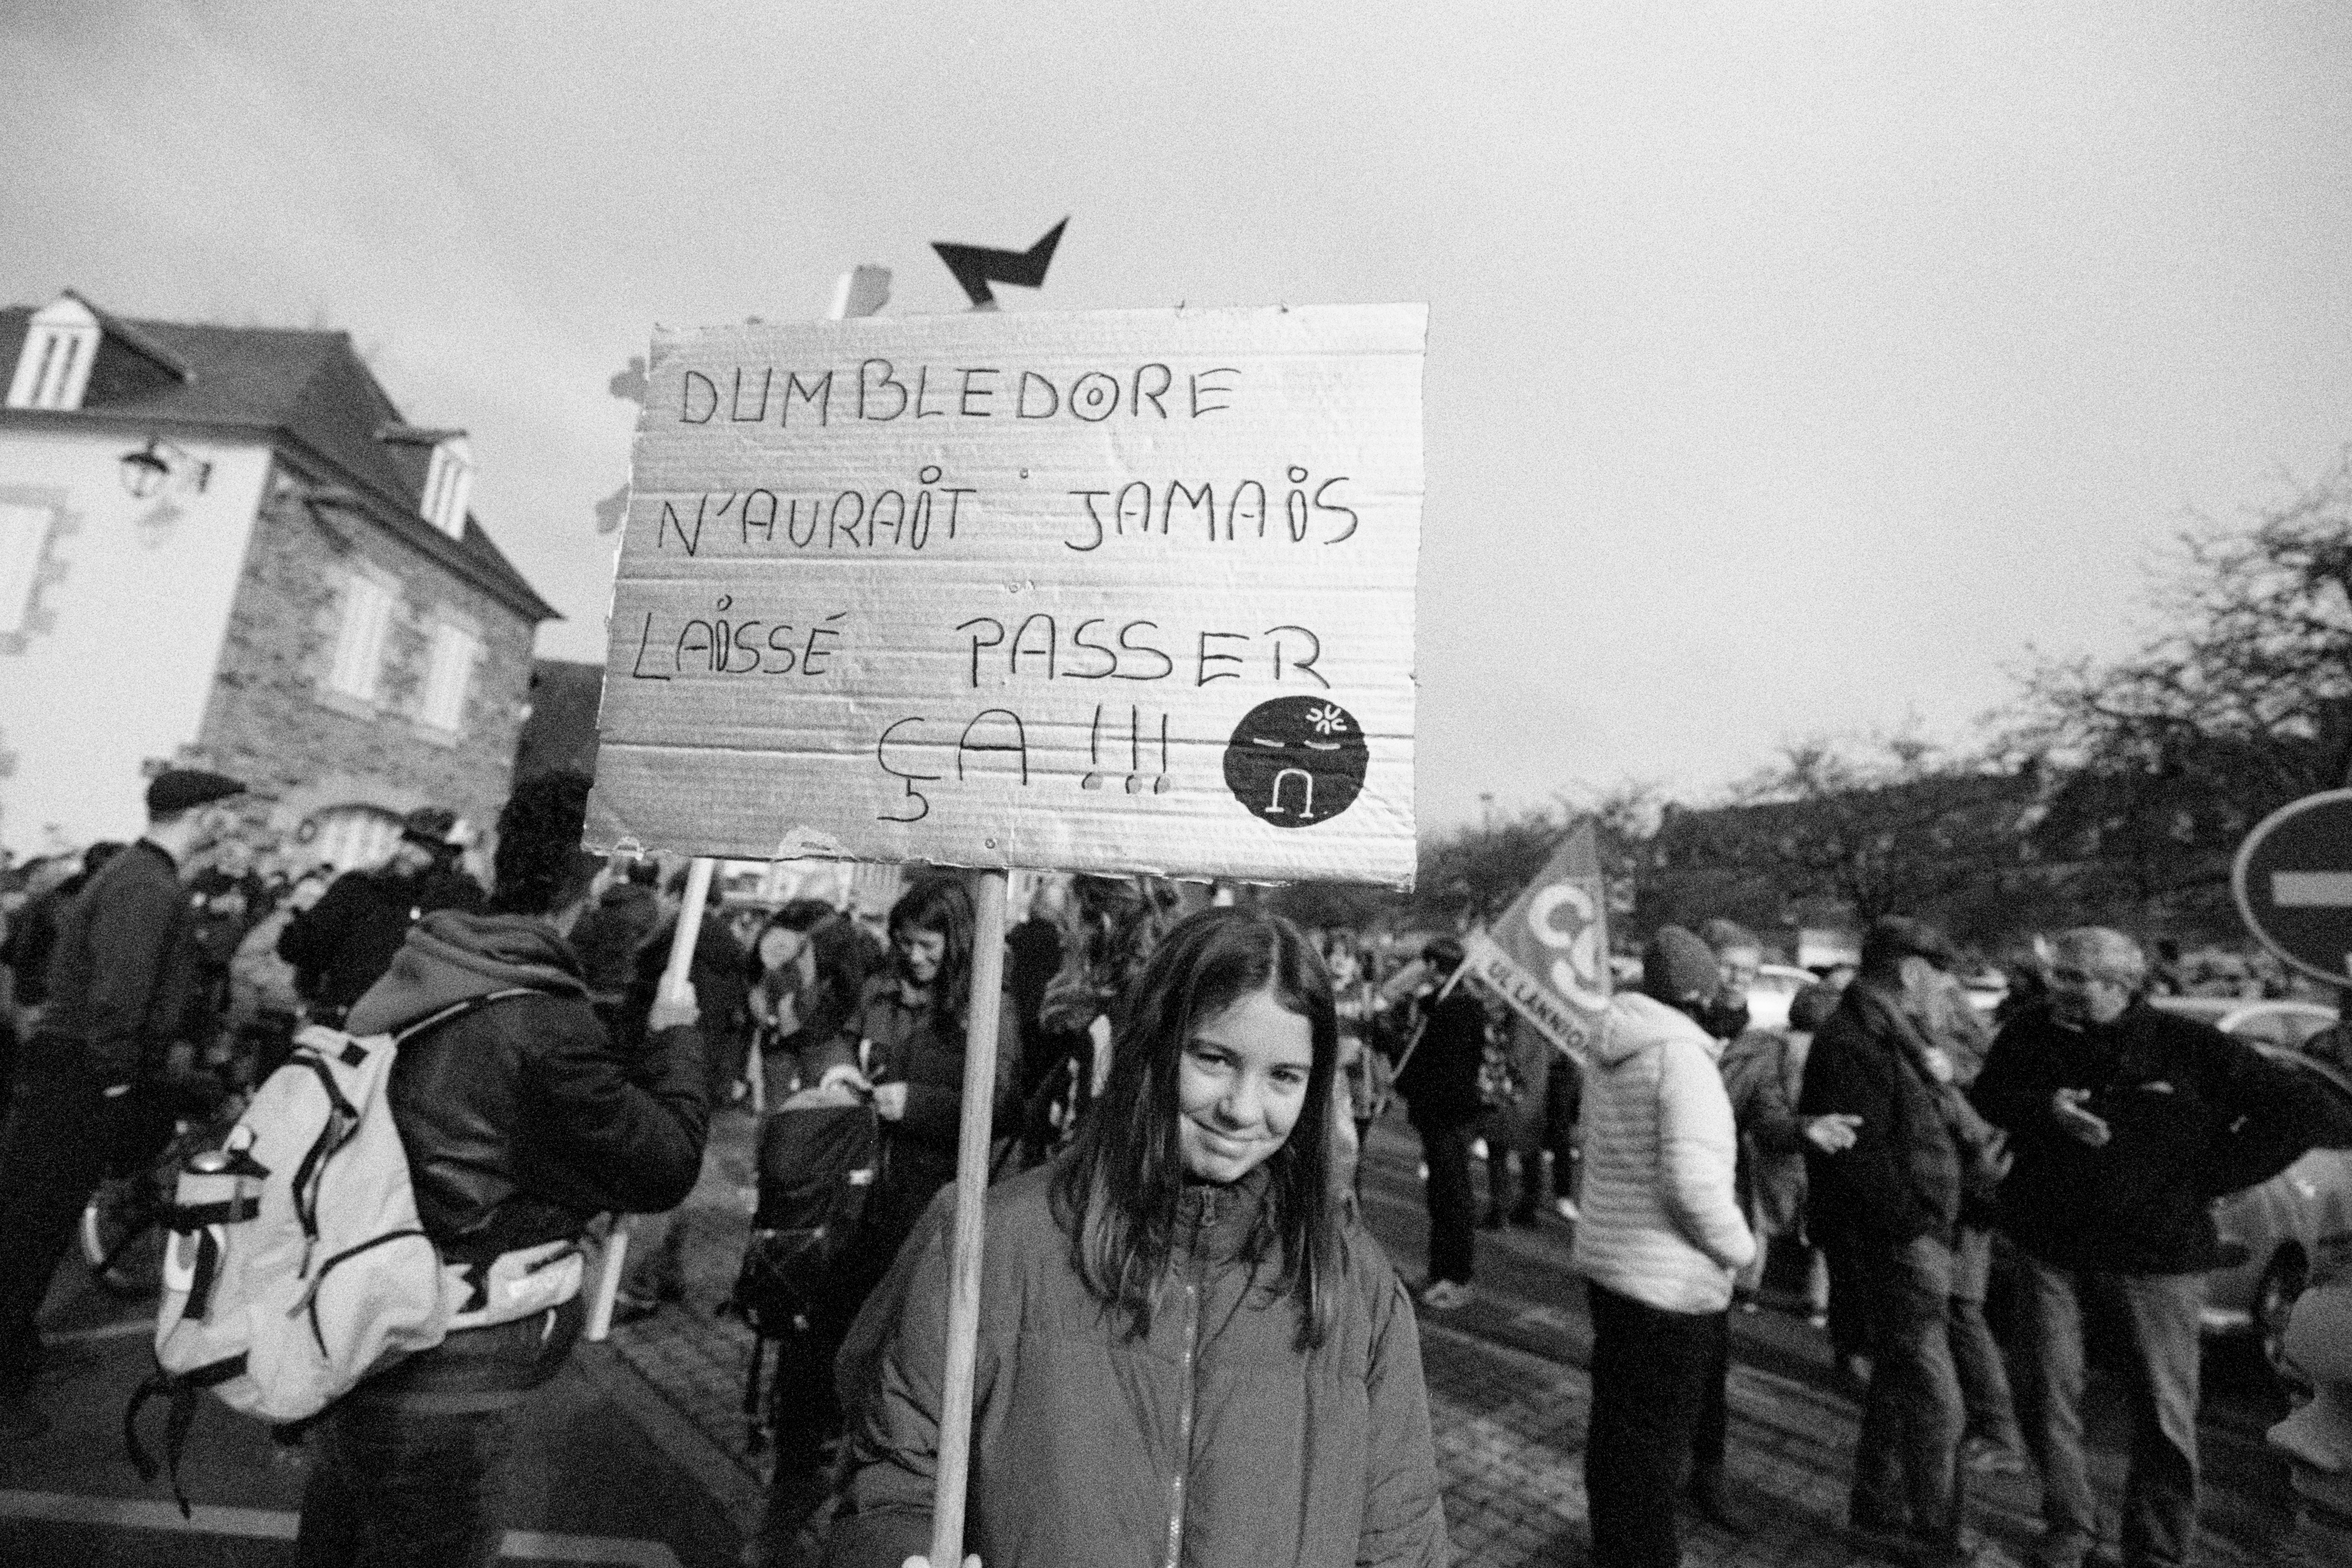 DUMBLEDORE
N'AURAIT JAMAIS
LAISSÉ PASSER
ÇA !!!
CG
UL LANNION